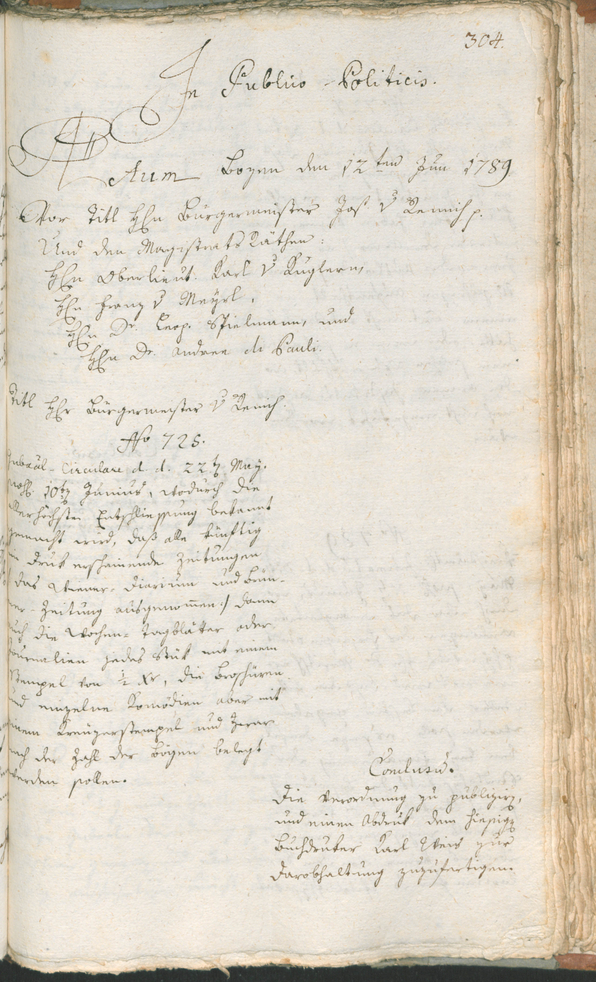 304.
In Publico-Politicis.
Actum Bozen den 12ten Jun 1789
Vor Titl Hhn Bürgermeister Jos. v Remich p.
Und den Magistrats Räthen:
Hhn Oberlieut. Karl v Kuglern,
Hhn Franz v Mayrl,
Hhn Dr. Leop. Spielmann, und
Hhn Dr. Andree di Pauli.
Titl Hhr Bürgermeister v Remich
No 728.
Gubrial-Circulare d. d. 22ten May,
10ten Junius, wodurch die
Allerhöchste Entschliessung bekannt
gemacht wird, daß alle künftig
in Druk erscheinende Zeitungen
das Wiener-Diarium und Brün-
ner-Zeitung ausgenommen:/ dann
auch die Wochen- Tagblätter oder
Journalien jedes Stük mit einem
Stempel von ½ Xr, die Broschüren
und einzelne Komödien aber mit
einem Kreuzerstempel und zwar
nach der Zahl der Bögen belegt
werden sollen.
Conclusum.
Die Verordnung zu publiziren,
und einen Abdruk dem hiesigen
Buchdruker Karl Weis zur
Darobhaltung zuzufertigen.